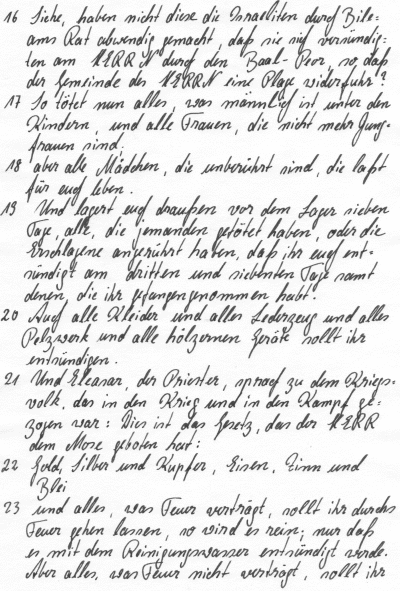 16 Siehe, haben nicht diese die Israeliten durch Bile=
ams Rat abwendig gemacht, daß sie sich versündig=
ten am HERRN durch den Baal-Peor, so daß
der Gemeinde des HERRN eine Plage widerfuhr?
17 So tötet nun alles, was männlich ist unter den
Kindern, und alle Frauen, die nicht mehr Jung=
frauen sind.
18 aber alle Mädchen, die unberührt sind, die laßt
für euch leben.
19 Und lagert euch draußen vor dem Lager sieben
Tage, alle, die jemanden getötet haben, oder die
Erschlagene angerührt haben, daß ihr euch ent=
sündigt am dritten und siebenten Tage samt
denen, die ihr gefangengenommen habt.
20 Auch alle Kleider und alles Lederzeug und alles
Pelzwerk und alle hölzernen Geräte sollt ihr
entsündigen.
21 Und Eleasar, der Priester, sprach zu dem Kriegs=
volk, das in den Krieg und in den Kampf ge=
zogen war: Dies ist das Gesetz, das der HERR
dem Mose geboten hat:
22 Gold, Silber und Kupfer, Eisen, Zinn und
Blei
23 und alles, was Feuer verträgt, sollt ihr durchs
Feuer gehen lassen, so wird es rein; nur daß
es mit dem Reinigungswasser entsündigt werde.
Aber alles, was Feuer nicht verträgt, sollt ihr